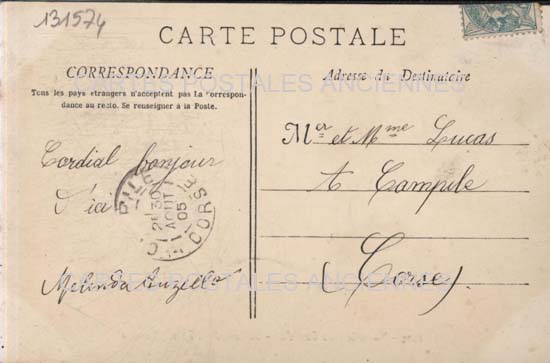 131574
CARTE POSTALE
CARTES POSTALES ANCIENNES
CORRESPONDANCE
Tous les pays étrangers n'acceptent pas la correspon-
dance au recto. Se renseigner à la Poste.
Cordial bonjour
d'ici
Melinda
Adresse du Destinataire
Mr et Mme Lucas
A Campile
(Corse)
30
AOUT
05
CORSE
CARTES POSTALES ANCIENNES